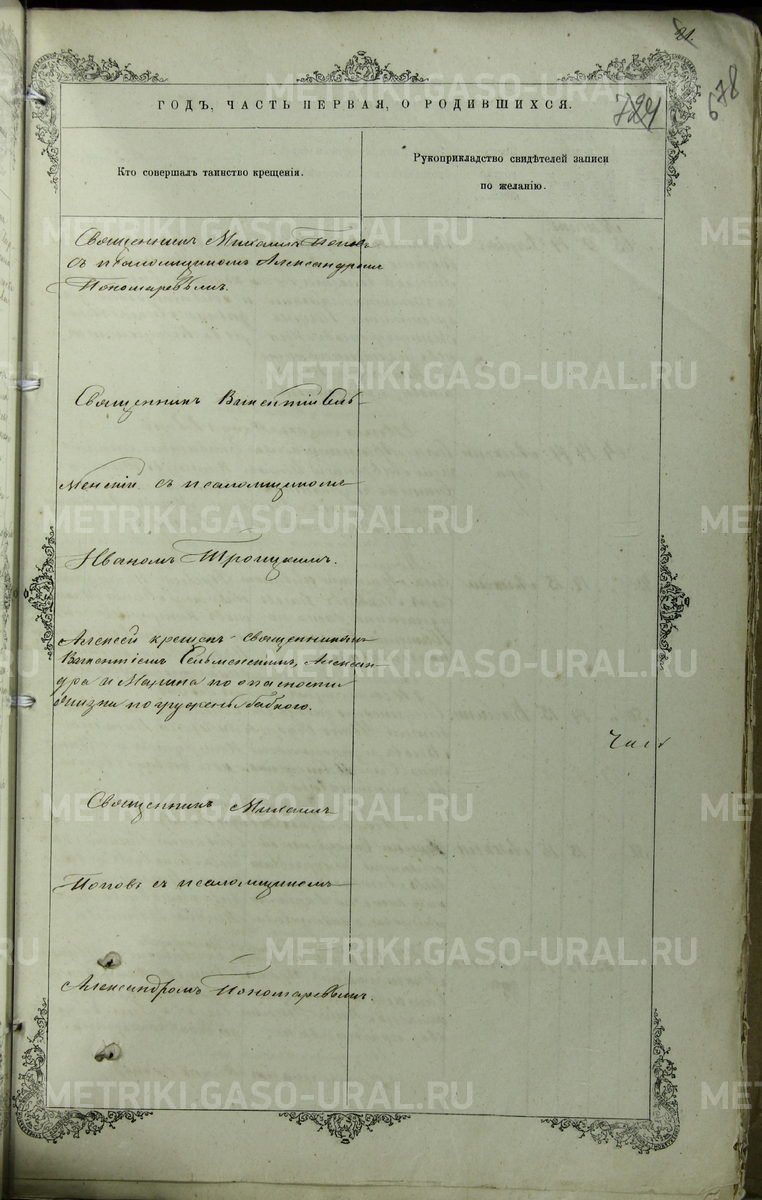 21.
ГОДЪ, ЧАСТЬ ПЕРВАЯ, О РОДИВШИХСЯ.
724
678
Кто совершалъ таинство крещенія.
Рукоприкладство свидѣтелей записи
по желанію.
Священникъ Михаилъ Поповъ
съ псаломщикомъ Александромъ
Пономаревымъ.
Священникъ Викентій Сель-
менскій съ псаломщикомъ
Иваномъ Троицкимъ.
Алексей крещенъ священникомъ
Викентіемъ Сельменскимъ, Алексан-
дра и Марина по опасности
жизни погружены бабкою.
Священникъ Михаилъ
Поповъ съ псаломщикомъ
Александромъ Пономаревымъ.
METRIKI.GASO-URAL.RU